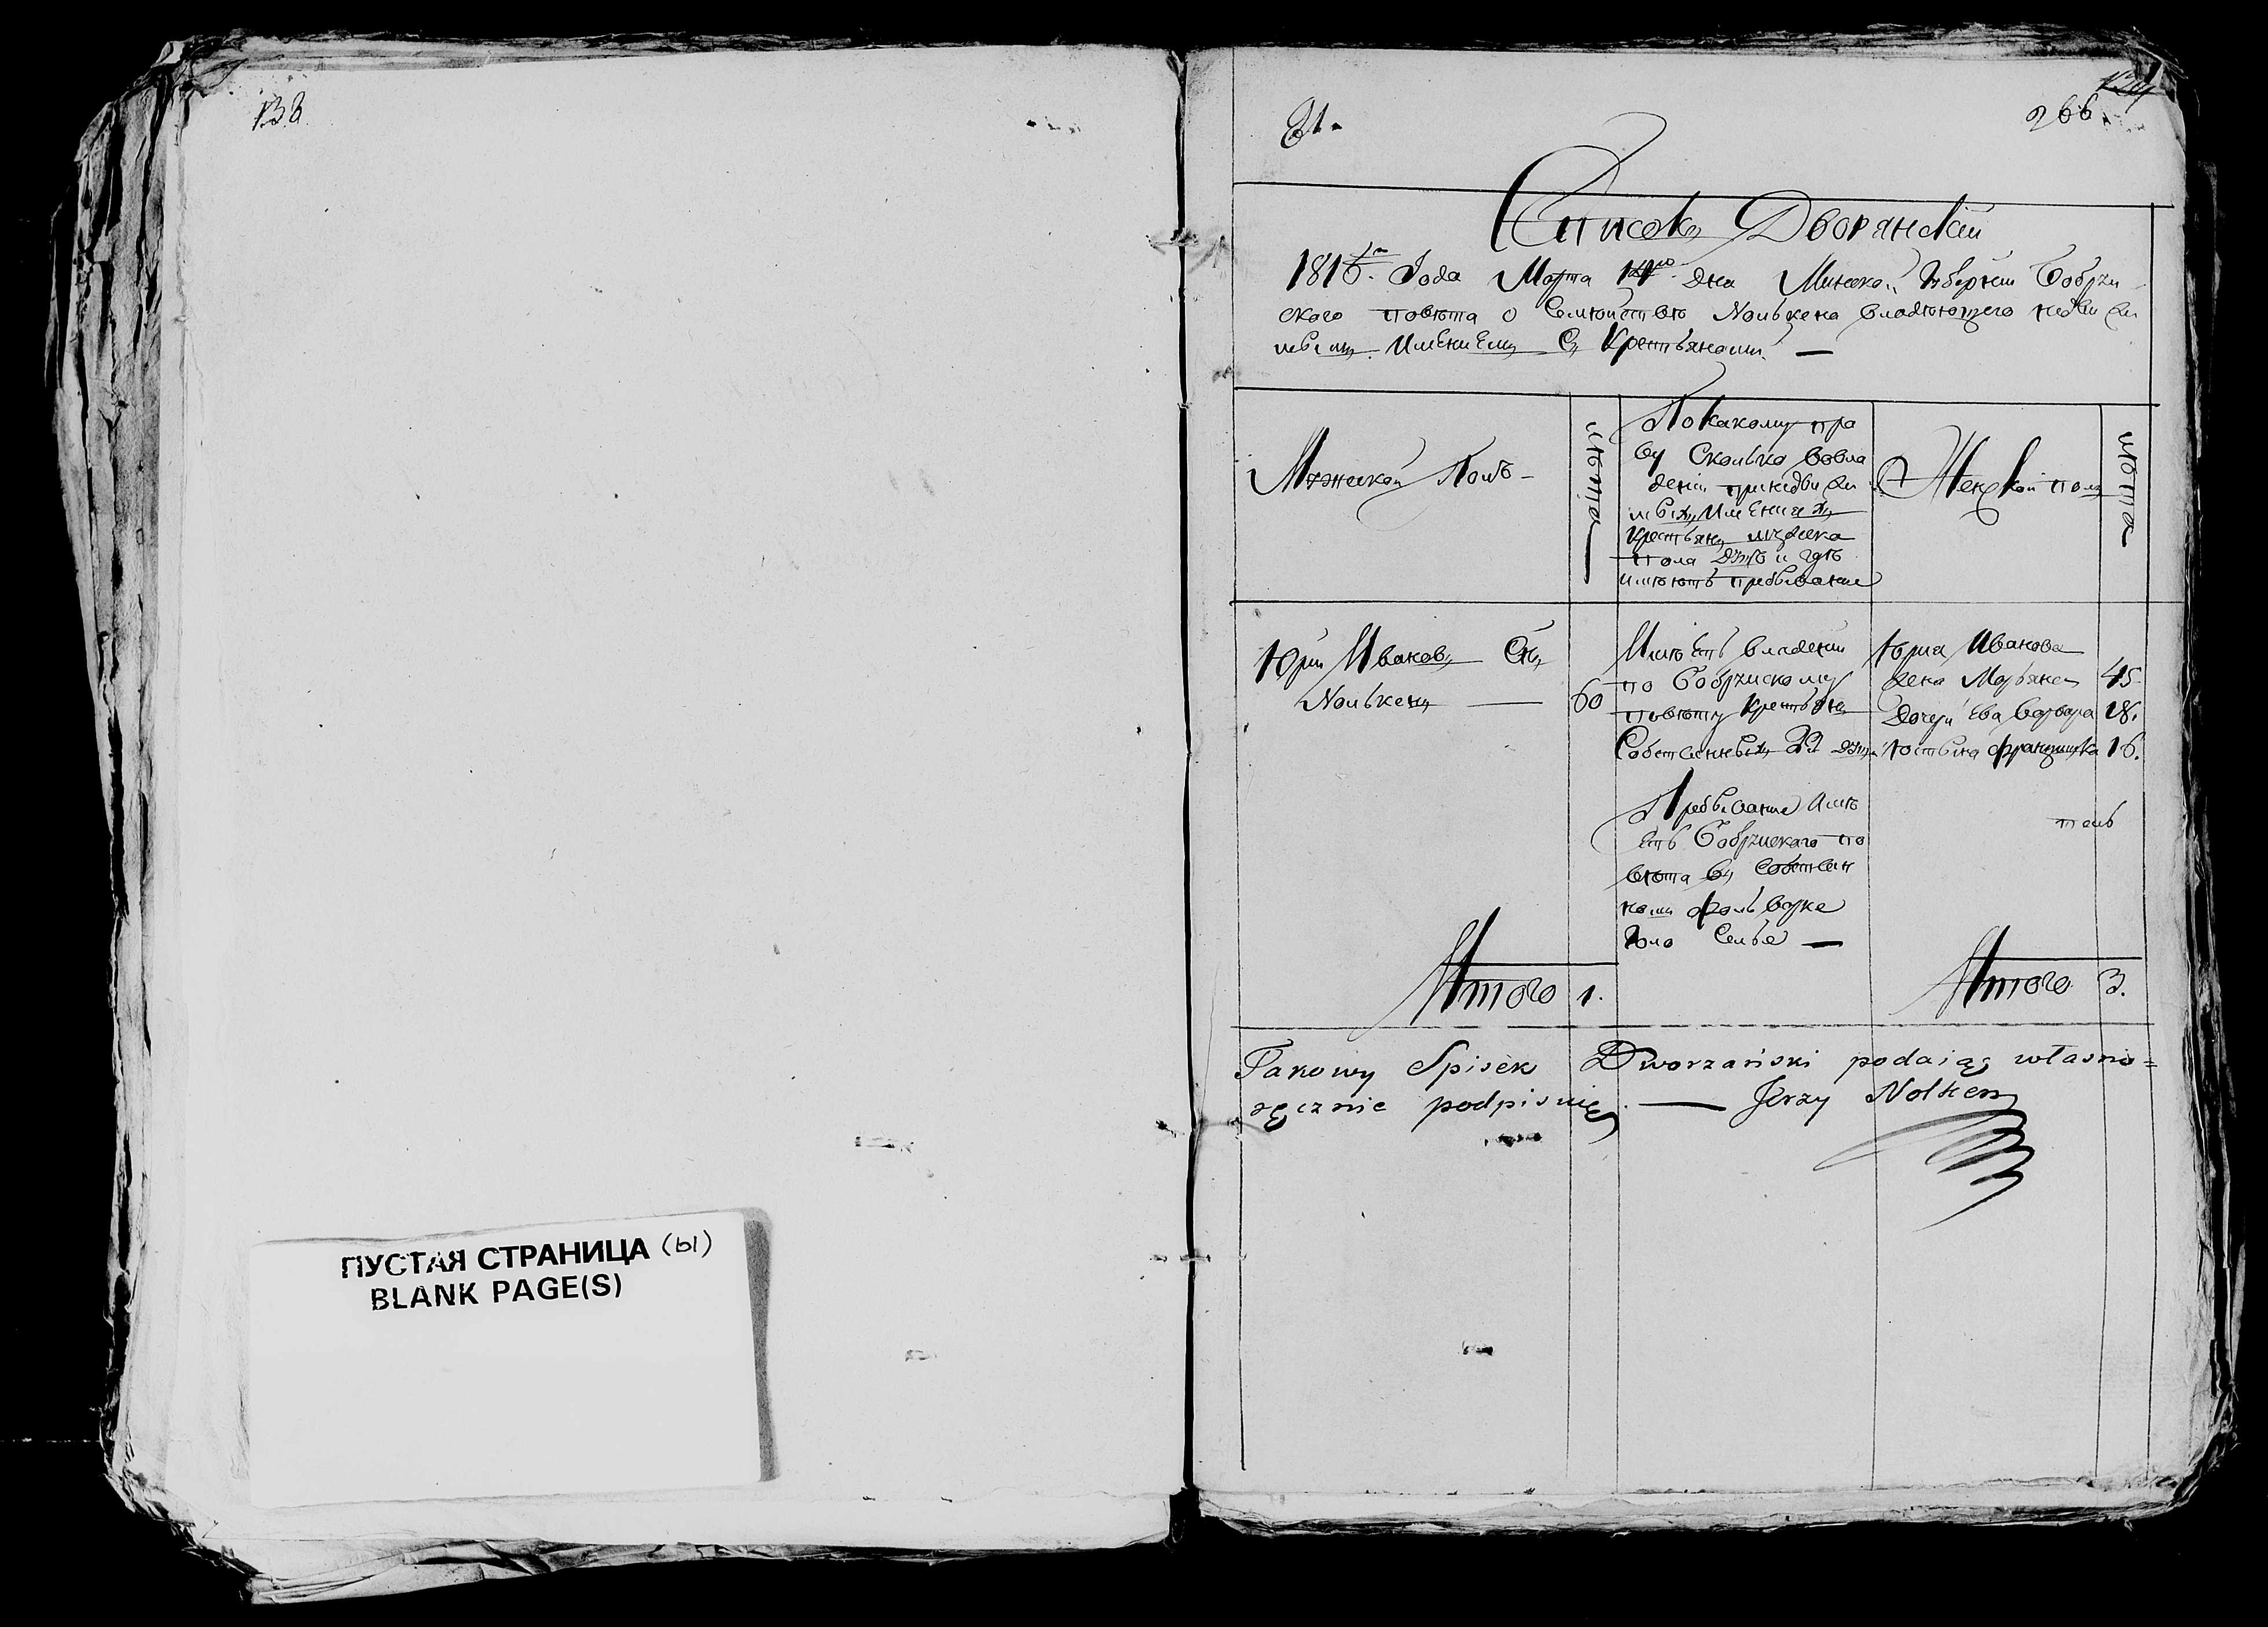 138
266
Списокъ Дворянскій
1816го Года Марта дня Минской Губерніи Бобруй
ского повѣта о Семействѣ Нолькена владѣющего недвижи
мымъ Имениемъ Съ Крестьянами. —
Мужской Полъ —
лѣта
По какому пра
ву Сколько вовла
деніи принедвижи
мыхъ Имениях
Крестьянъ мужеска
пола душъ и гдѣ
имѣютъ пребывание
Женской полъ
лѣта
Юрій Ивановъ Сынъ
Нолькенъ — 60
Имѣетъ владеніи
по Бобруйскому
повѣту Крестьянъ
Собственныхъ душъ
Пребывание Имѣ
етъ Бобруйского по
вѣта въ Собствен
номъ фольварке
Селье —
Юрия Иванова
Жена Марьяна 45.
Дочери Ева Варвара 18.
Юстына Францишка 16.
Итого 1.
Итого 3.
Takowy Spisek Dworzański podaiąc własno=
ręcznie podpisuię. — Jerzy Nolken
ПУСТАЯ СТРАНИЦА (Ы)
BLANK PAGE(S)